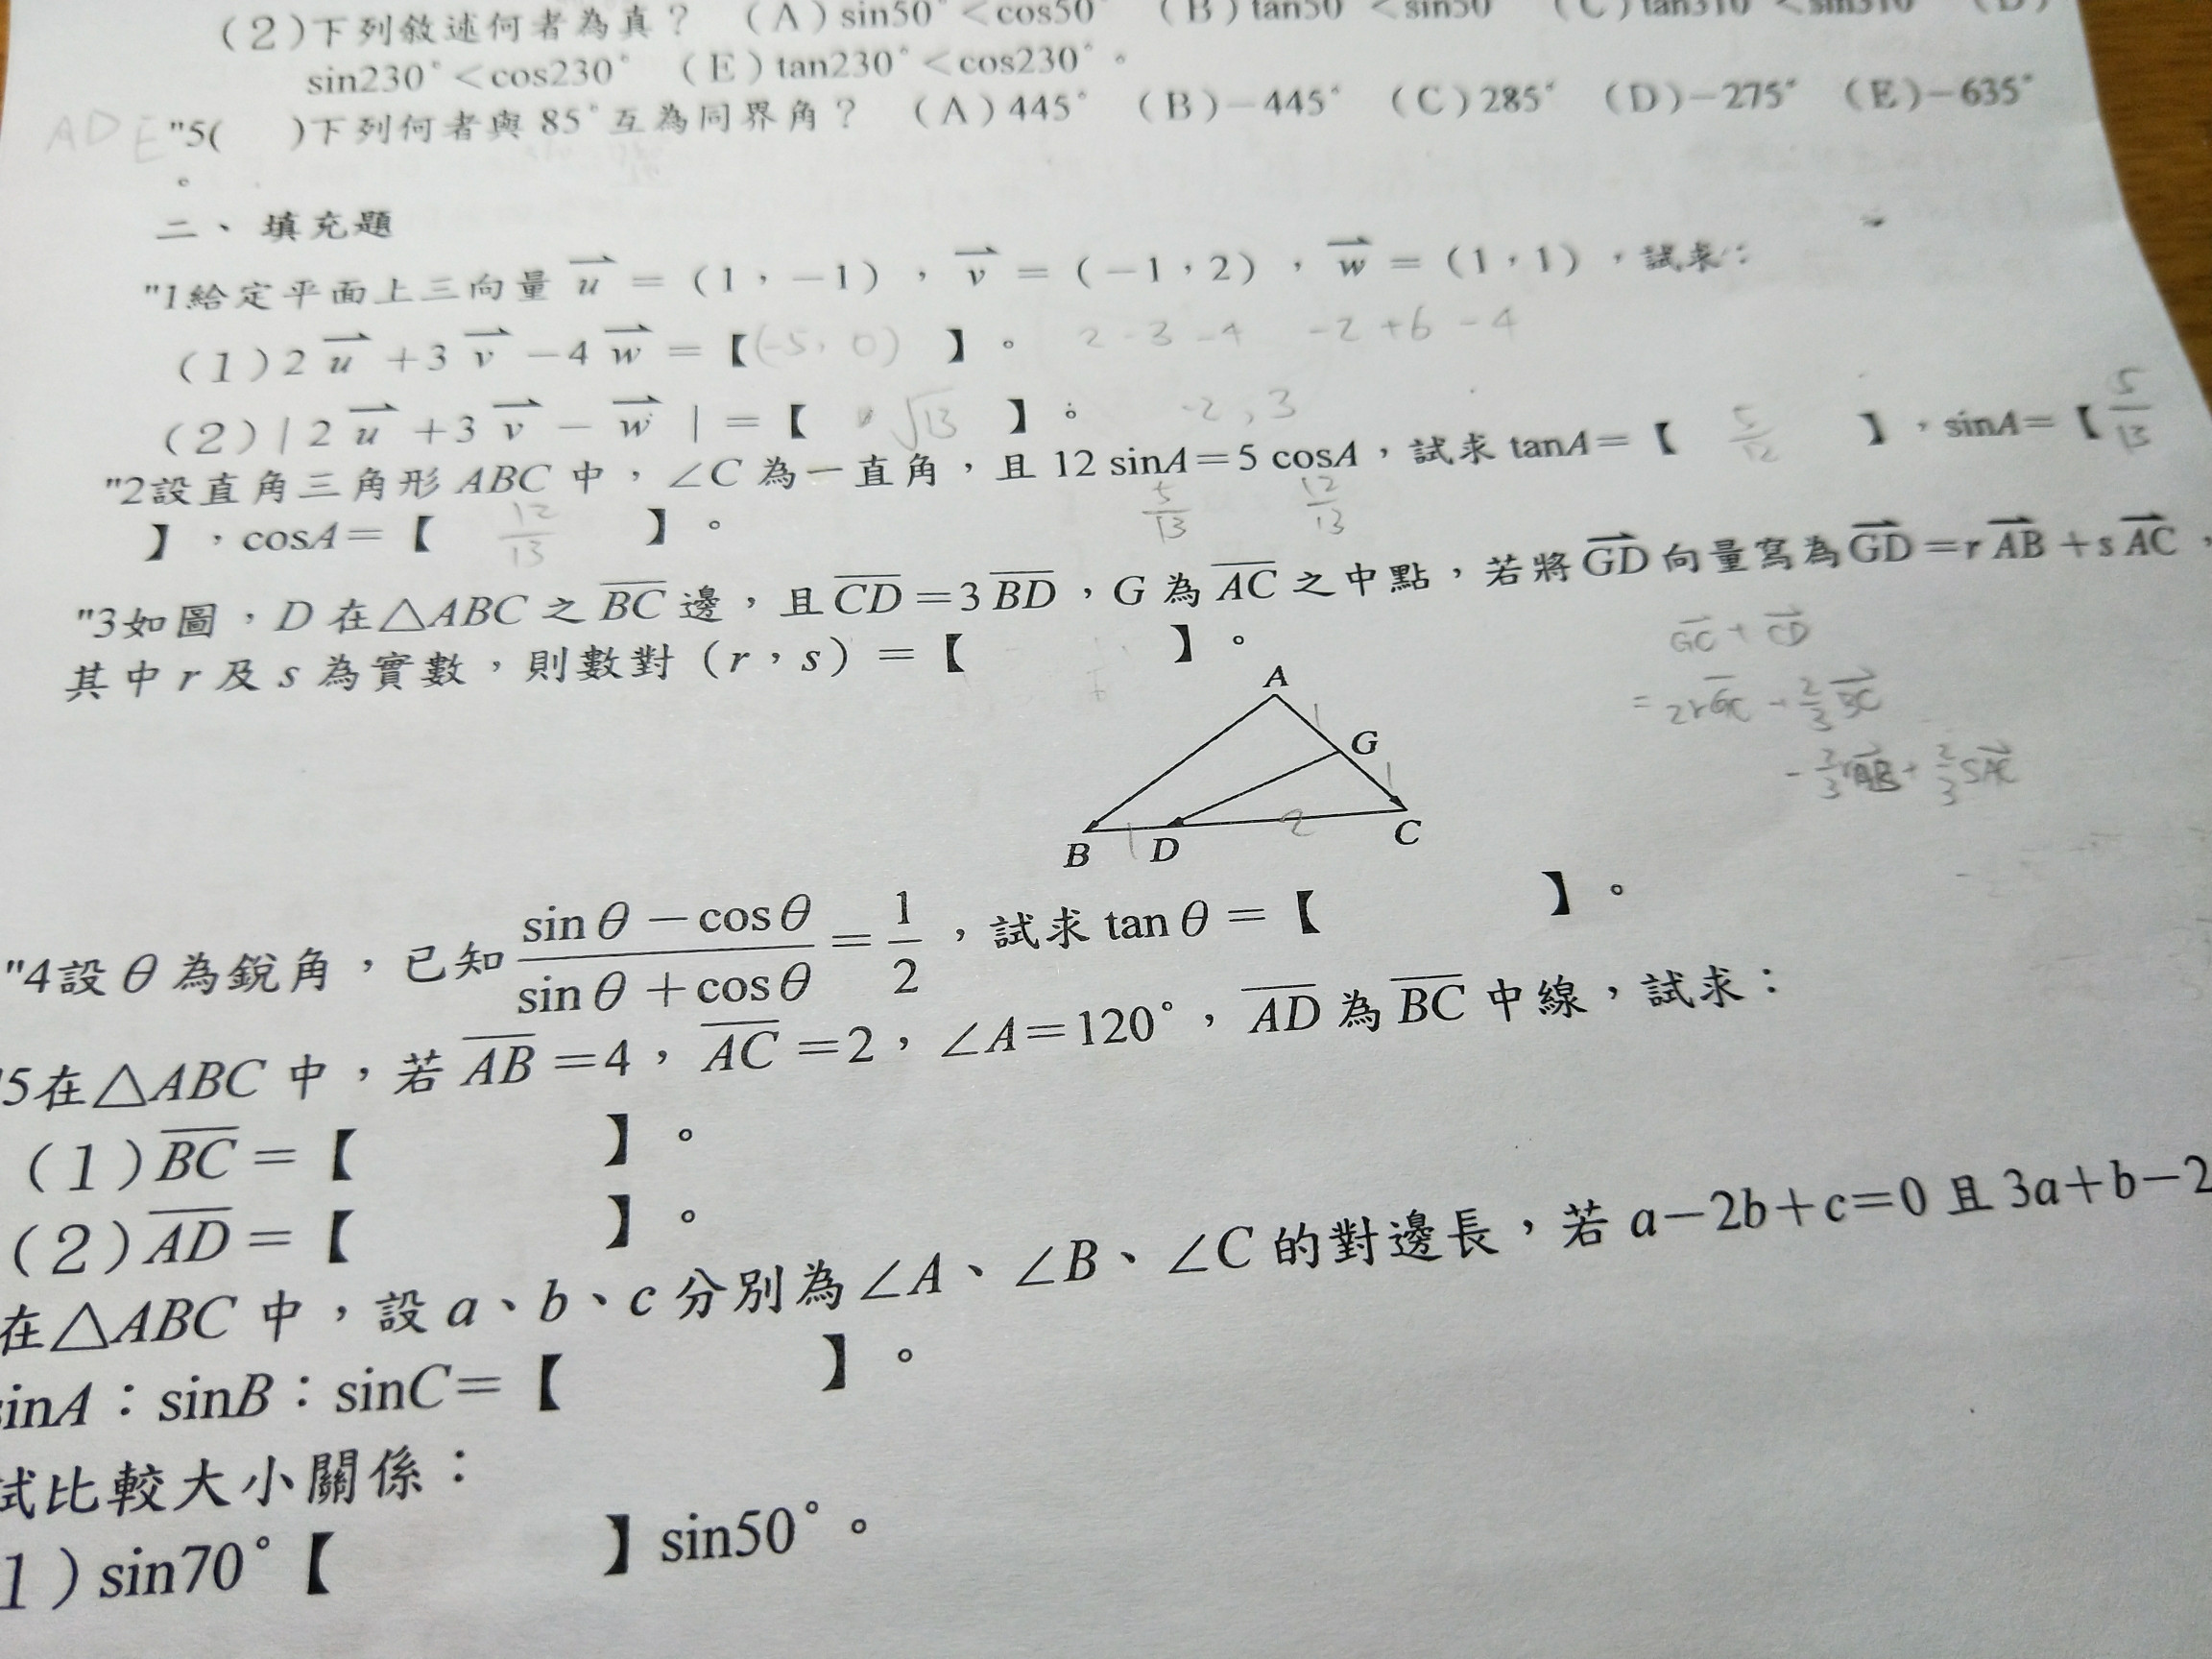 (2)下列敘述何者為真? (A)sin50°<cos50° (B)tan50°<sin50° (C)tan310°<sin310° (D)
sin230°<cos230° (E)tan230°<cos230°。
ADE "5( )下列何者與85°互為同界角? (A)445° (B)-445° (C)285° (D)-275° (E)-635°
。
二、填充題
"1給定平面上三向量 u = (1,-1),v = (-1,2),w = (1,1),試求:
(1)2 u +3 v -4 w =【(-5, 0)】。 2-3-4 -2+6-4
(2)|2 u +3 v - w |=【√13】。 -2,3
"2設直角三角形ABC中,∠C為一直角,且12 sinA=5 cosA,試求tanA=【5/12】,sinA=【5/13
】,cosA=【12/13】。 5/13 12/13
"3如圖,D在△ABC之BC邊,且CD=3BD,G為AC之中點,若將GD向量寫為GD=rAB+sAC,
其中r及s為實數,則數對(r,s)=【 】。
GC + CD
A
G
1
1
B
1
D
2
C
"4設θ為銳角,已知(sinθ-cosθ)/(sinθ+cosθ)=1/2,試求tanθ=【 】。
"5在△ABC中,若AB=4,AC=2,∠A=120°,AD為BC中線,試求:
(1)BC=【 】。
(2)AD=【 】。
在△ABC中,設a、b、c分別為∠A、∠B、∠C的對邊長,若a-2b+c=0且3a+b-2
sinA:sinB:sinC=【 】。
試比較大小關係:
1)sin70°【 】sin50°。